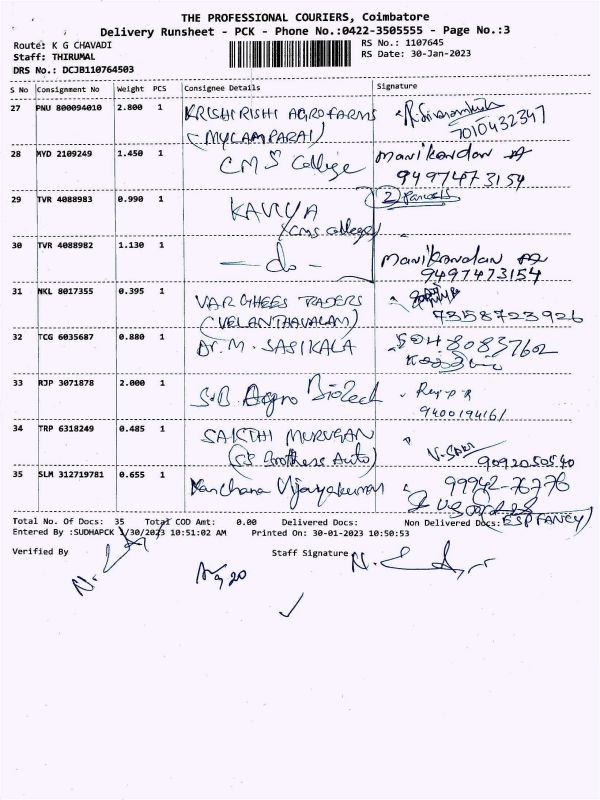 THE PROFESSIONAL COURIERS, Coimbatore
Delivery Runsheet - PCK - Phone No.:0422-3505555 - Page No.:3
Route: K G CHAVADI RS No.: 1107645
Staff: THIRUMAL RS Date: 30-Jan-2023
DRS No.: DCJB110764503
S No Consignment No Weight PCS Consignee Details Signature
27 PNU 800094010 2.800 1 KRISHIRISHI AGROFARMS
(MYLAMPARAI) 7010432347
28 MYD 2109249 1.450 1 CMS College Manikandan
9497473154
29 TVR 4088983 0.990 1 KAVIYA (2) Parcels
(cms college)
30 TVR 4088982 1.130 1 - do - Manikandan
9497473154
31 NKL 8017355 0.395 1 VARGHEES TRADERS
(VELANTHAVALAM) 7358723926
32 TCG 6035687 0.880 1 Dr. M. SASIKALA
33 RJP 3071878 2.000 1 S.B. Aggro Biotech
9400194161
34 TRP 6318249 0.485 1 SAKTHI MURUGAN
(SS Brothers Auto) 9092050540
35 SLM 312719781 0.655 1 Kanchana Vijayakumar 99942-76776
(ESP FANCY)
Total No. Of Docs: 35 Total COD Amt: 0.00 Delivered Docs: Non Delivered Docs:
Entered By :SUDHAPCK 1/30/2023 10:51:02 AM Printed On: 30-01-2023 10:50:53
Verified By Staff Signature